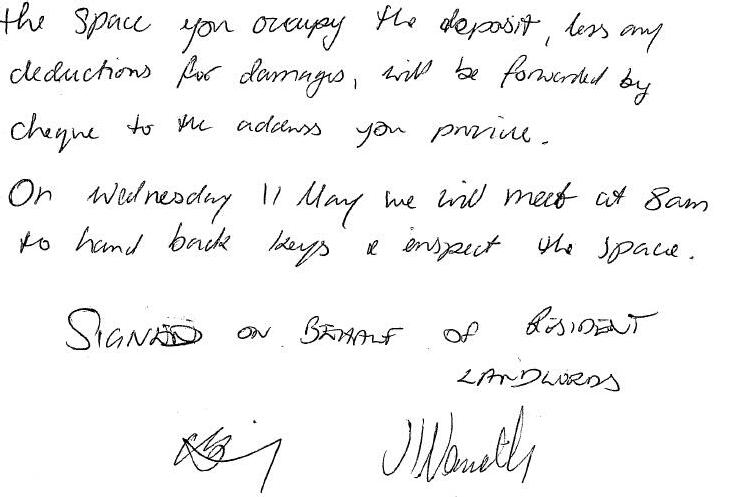 the space you occupy the deposit, less any
deductions for damages, will be forwarded by
cheque to the address you provine.
On Wednesday 11 May we will meet at 8am
to hand back keys & enspect the space.
SIGNED ON BEHALF OF RESIDENT
LANDLORDS